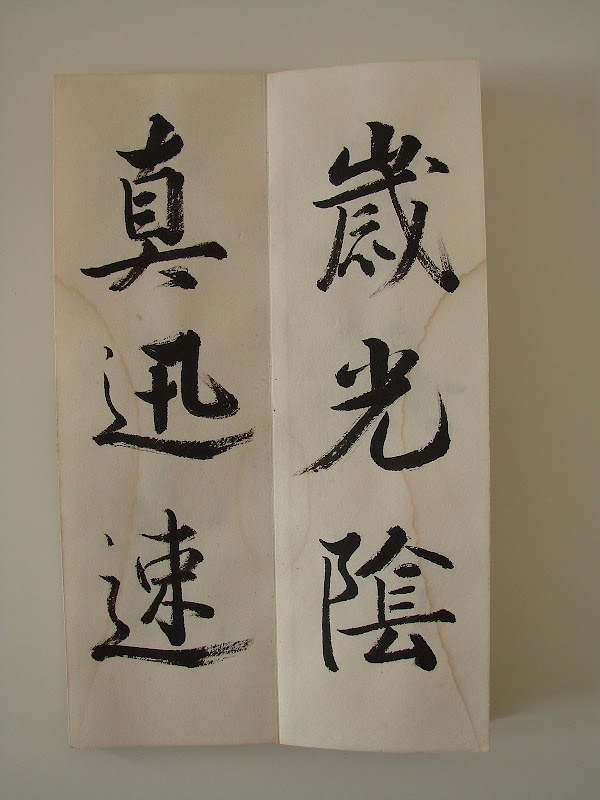 歳光陰
真迅速